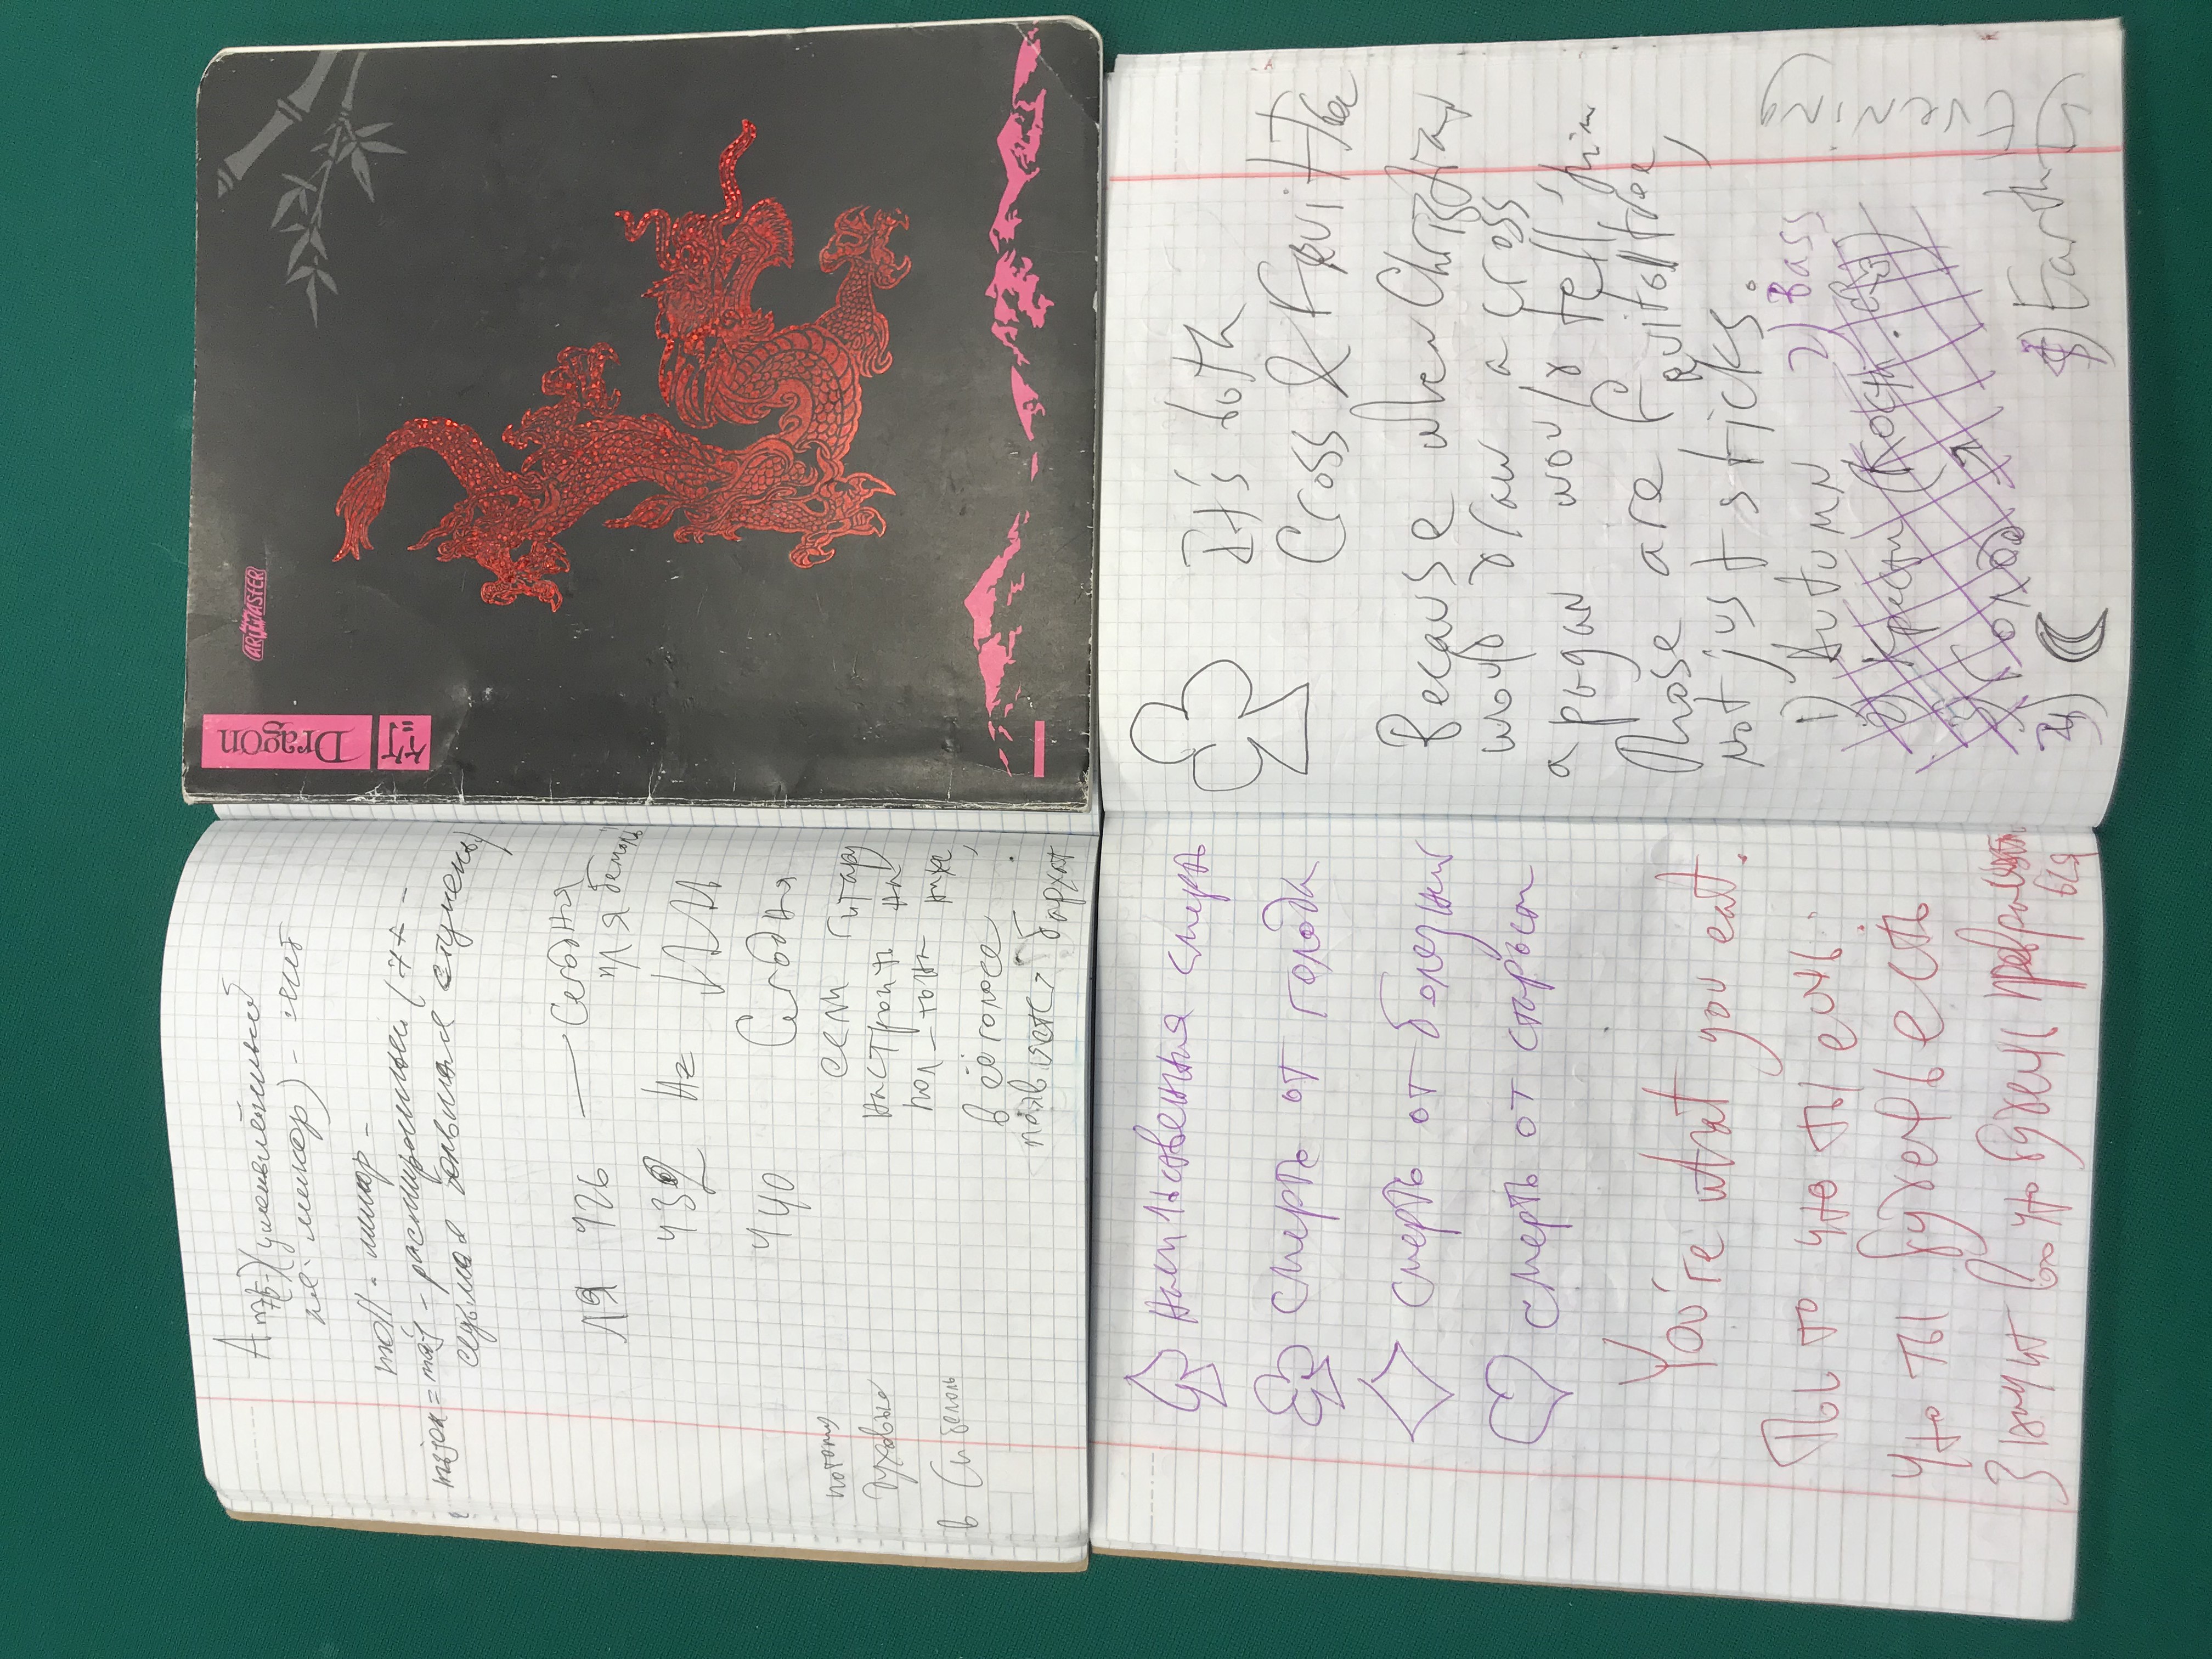 Am7/5-) (уменьшённый
ля-минор) -
moll - минор -
major = maj - расширенный (7+ -
седьмая большая ступень)
ля 426 — Сегодня
ля бемоль
432 Hz
440 Сегодня
если гитару
настроить на
пол-тона ниже,
в её голосе
появляется бархат
потому
духовые
в Си бемоль
Dragon
竹
ARTMASTER
насильственная смерть
смерть от голода
смерть от болезни
смерть от старости
You're what you eat.
Ты то что ты ешь.
Что ты будешь есть
Значит во что будешь превращать
ься
It's both
Cross & Fruit Tree
Because when Christian
would draw a cross
a pagan would tell 'him
Those are fruitoftree,
not just sticks.
1) Autumn
2) Bass
2) Крести (Кости.
3) Голод
3)
4) Earth
5) EVENING